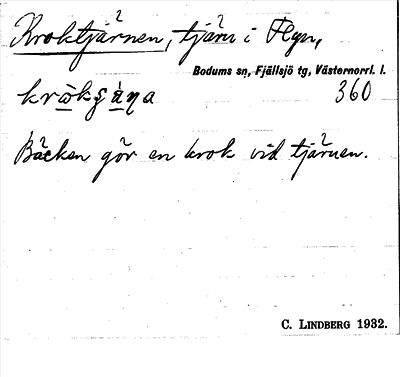 Kroktjärnen, tjärn i Flyn,
Bodums sn, Fjällsjö tg, Västernorrl. l.
360
Bäcken gör en krok vid tjärnen.
C. LINDBERG 1932.